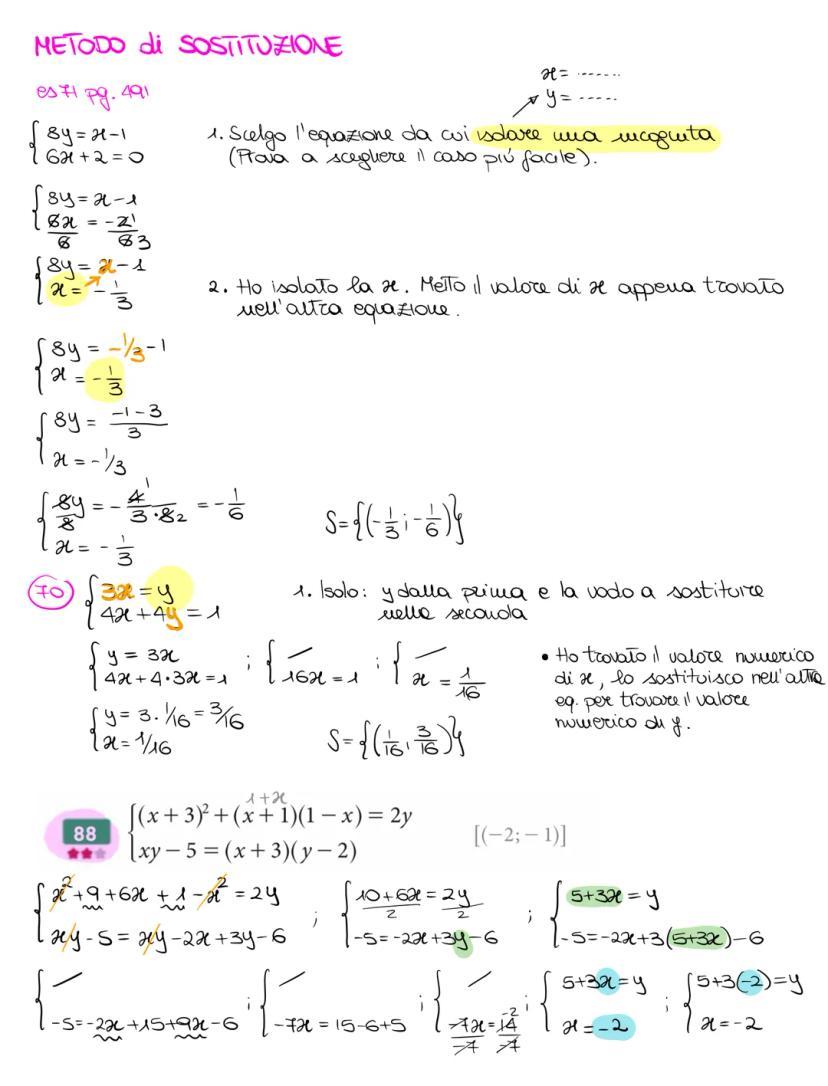 METODO di SOSTITUZIONE
es 71 pg. 491
x = ......
y = .....
{ 8y = x-1
{ 6x + 2 = 0
1. Scelgo l'equazione da cui isolare una incognita
(Prova a scegliere il caso più facile).
{ 8y = x-1
{ 6x/6 = -2¹/6 3
{ 8y = x-1
{ x = -1/3
2. Ho isolato la x. Metto il valore di x appena trovato
nell'altra equazione.
{ 8y = -1/3 -1
{ x = -1/3
{ 8y = (-1-3)/3
{ x = -1/3
{ 8y/8 = -4¹/(3·8 2) = -1/6
{ x = -1/3
S={(-1/3; -1/6)}
70
{ 3x = y
{ 4x + 4y = 1
1. Isolo: y dalla prima e la vado a sostituire
nella seconda
{ y = 3x
{ 4x+4·3x=1
; { —
{ 16x = 1
; { —
{ x = 1/16
• Ho trovato il valore numerico
di x, lo sostituisco nell'altra
eq. per trovare il valore
numerico di y.
{ y = 3·1/16 = 3/16
{ x = 1/16
S={(1/16, 3/16)}
88
1+x
{ (x + 3)² + (x + 1)(1 − x) = 2y
{ xy − 5 = (x + 3)(y − 2)
[(−2; − 1)]
{ x²+9+6x+1-x² = 2y
{ xy-5 = xy-2x+3y-6
; { 10+6x/2 = 2y/2
{ -5=-2x+3y-6
; { 5+3x = y
{ -5=-2x+3(5+3x)-6
{ —
{ -5=-2x+15+9x-6
; { —
{ -7x = 15-6+5
; { —
{ -7x/-7 = 14/-7 -2
; { 5+3x=y
{ x=-2
; { 5+3(-2)=y
{ x=-2